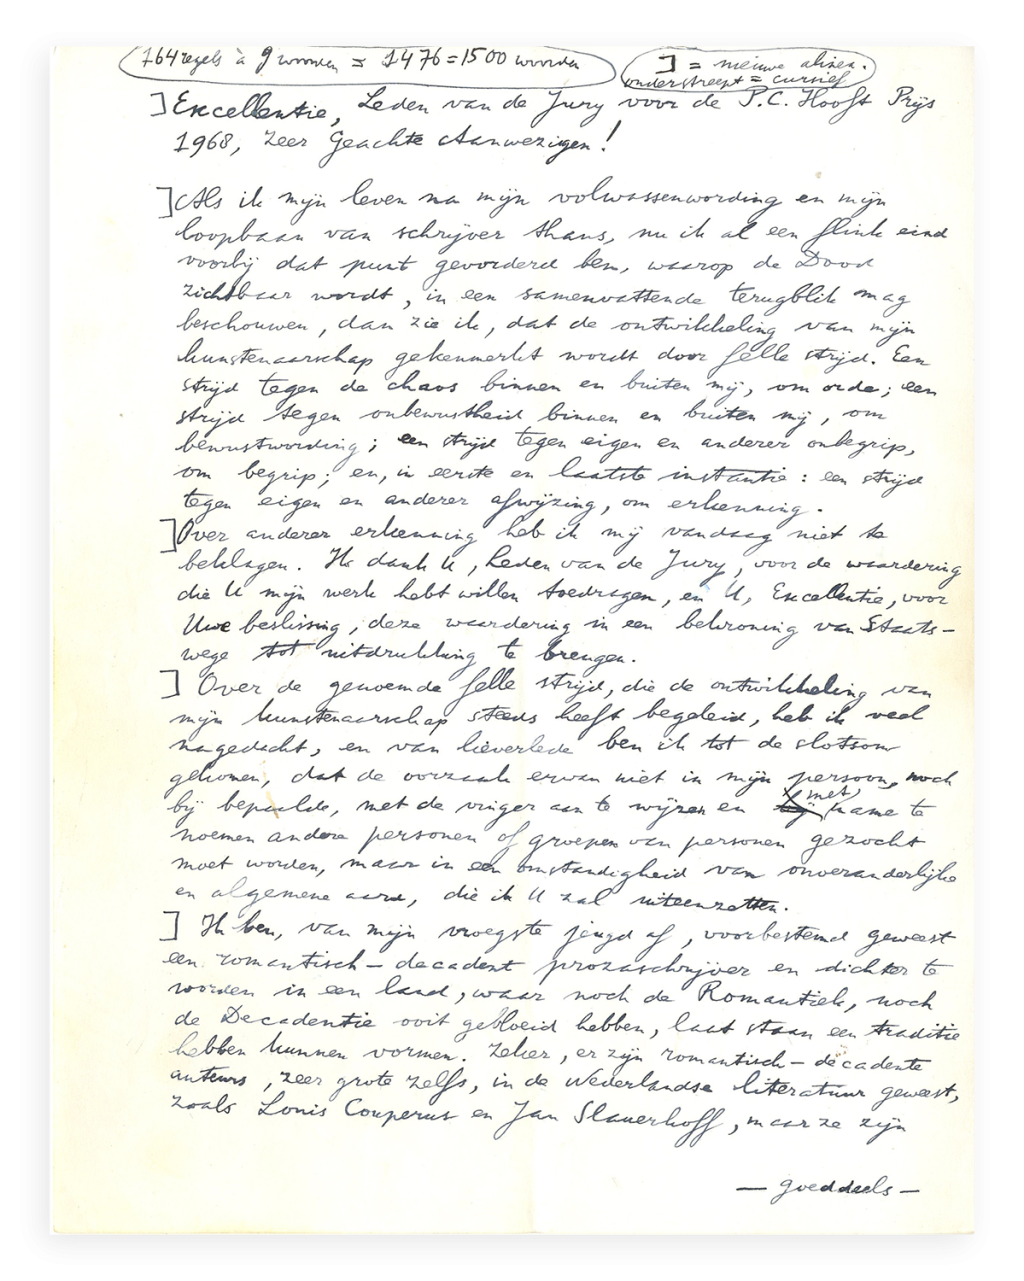 164 regels à 9 woorden = 1476 = 1500 woorden
] = nieuwe alinea.
onderstreept = cursief
] Excellentie, Leden van de Jury voor de P.C. Hooft Prijs
1968, Zeer Geachte Aanwezigen!
] Als ik mijn leven na mijn volwassenwording en mijn
loopbaan van schrijver thans, nu ik al een flink eind
voorbij dat punt gevorderd ben, waarop de Dood
zichtbaar wordt, in een samenvattende terugblik mag
beschouwen, dan zie ik, dat de ontwikkeling van mijn
kunstenaarschap gekenmerkt wordt door felle strijd. Een
strijd tegen de chaos binnen en buiten mij, om orde; een
strijd tegen onbewustheid binnen en buiten mij, om
bewustwording; een strijd tegen eigen en anderer onbegrip,
om begrip; en, in eerste en laatste instantie: een strijd
tegen eigen en anderer afwijzing, om erkenning.
] Over anderer erkenning heb ik mij vandaag niet te
beklagen. Ik dank U, Leden van de Jury, voor de waardering
die U mijn werk hebt willen toedragen, en U, Excellentie, voor
Uwe beslissing, deze waardering in een bekroning van Staats-
wege tot uitdrukking te brengen.
] Over de genoemde felle strijd, die de ontwikkeling van
mijn kunstenaarschap steeds heeft begeleid, heb ik veel
nagedacht, en van lieverlede ben ik tot de slotsom
gekomen, dat de oorzaak ervan niet in mijn persoon, noch
bij bepaalde, met de vinger aan te wijzen en met name te
noemen andere personen of groepen van personen gezocht
moet worden, maar in een omstandigheid van onveranderlijke
en algemene aard, die ik U zal uiteenzetten.
] Ik ben, van mijn vroegste jeugd af, voorbestemd geweest
een romantisch-decadent prozaschrijver en dichter te
worden in een land, waar noch de Romantiek, noch
de Decadentie ooit gebloeid hebben, laat staan een traditie
hebben kunnen vormen. Zeker, er zijn romantisch-decadente
auteurs, zeer grote zelfs, in de Nederlandse literatuur geweest,
zoals Louis Couperus en Jan Slauerhoff, maar ze zijn
— goeddeels —